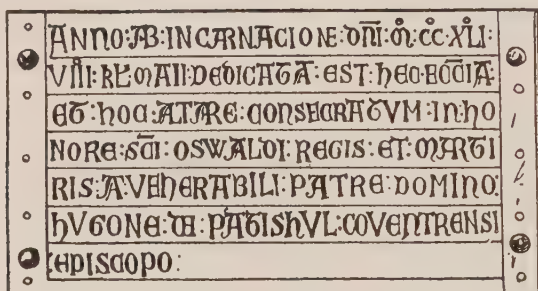 ANNO:AB:INCARNACIONE:DN̄I:M̊:C̊C̊:XLI:
VIII:KL̄ MAII:DEDICATA:EST:HEC:ECC̄IA:
ET:HOC:ALTARE:CONSECRATVM:IN:HO
NORE:SC̄I:OSWALDI:REGIS:ET:MARTI
RIS:A:VENERABILI:PATRE:DOMINO:
HVGONE:DE:PATISHVL:COVENTRENSI
:EPISCOPO: